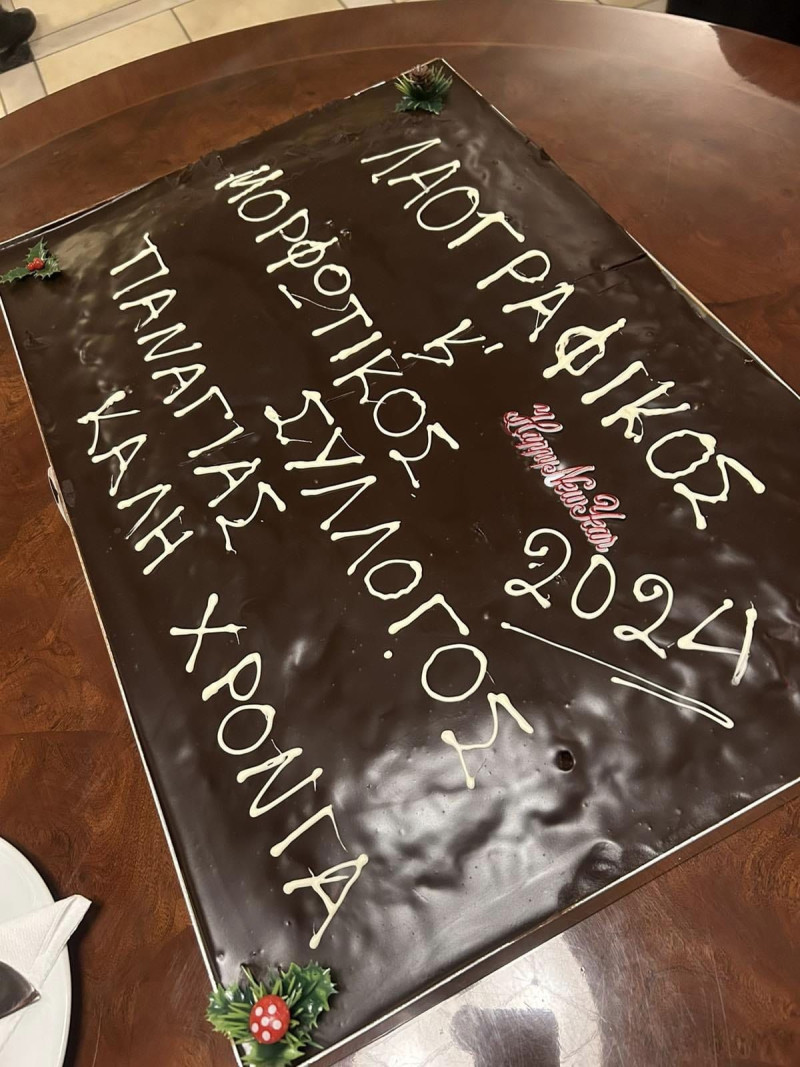 ΛΑΟΓΡΑΦΙΚΟΣ
Κ'
ΜΟΡΦΩΤΙΚΟΣ
ΣΥΛΛΟΓΟΣ
ΠΑΝΑΓΙΑΣ
ΚΑΛΗ ΧΡΟΝΙΑ
Happy New Year
2024